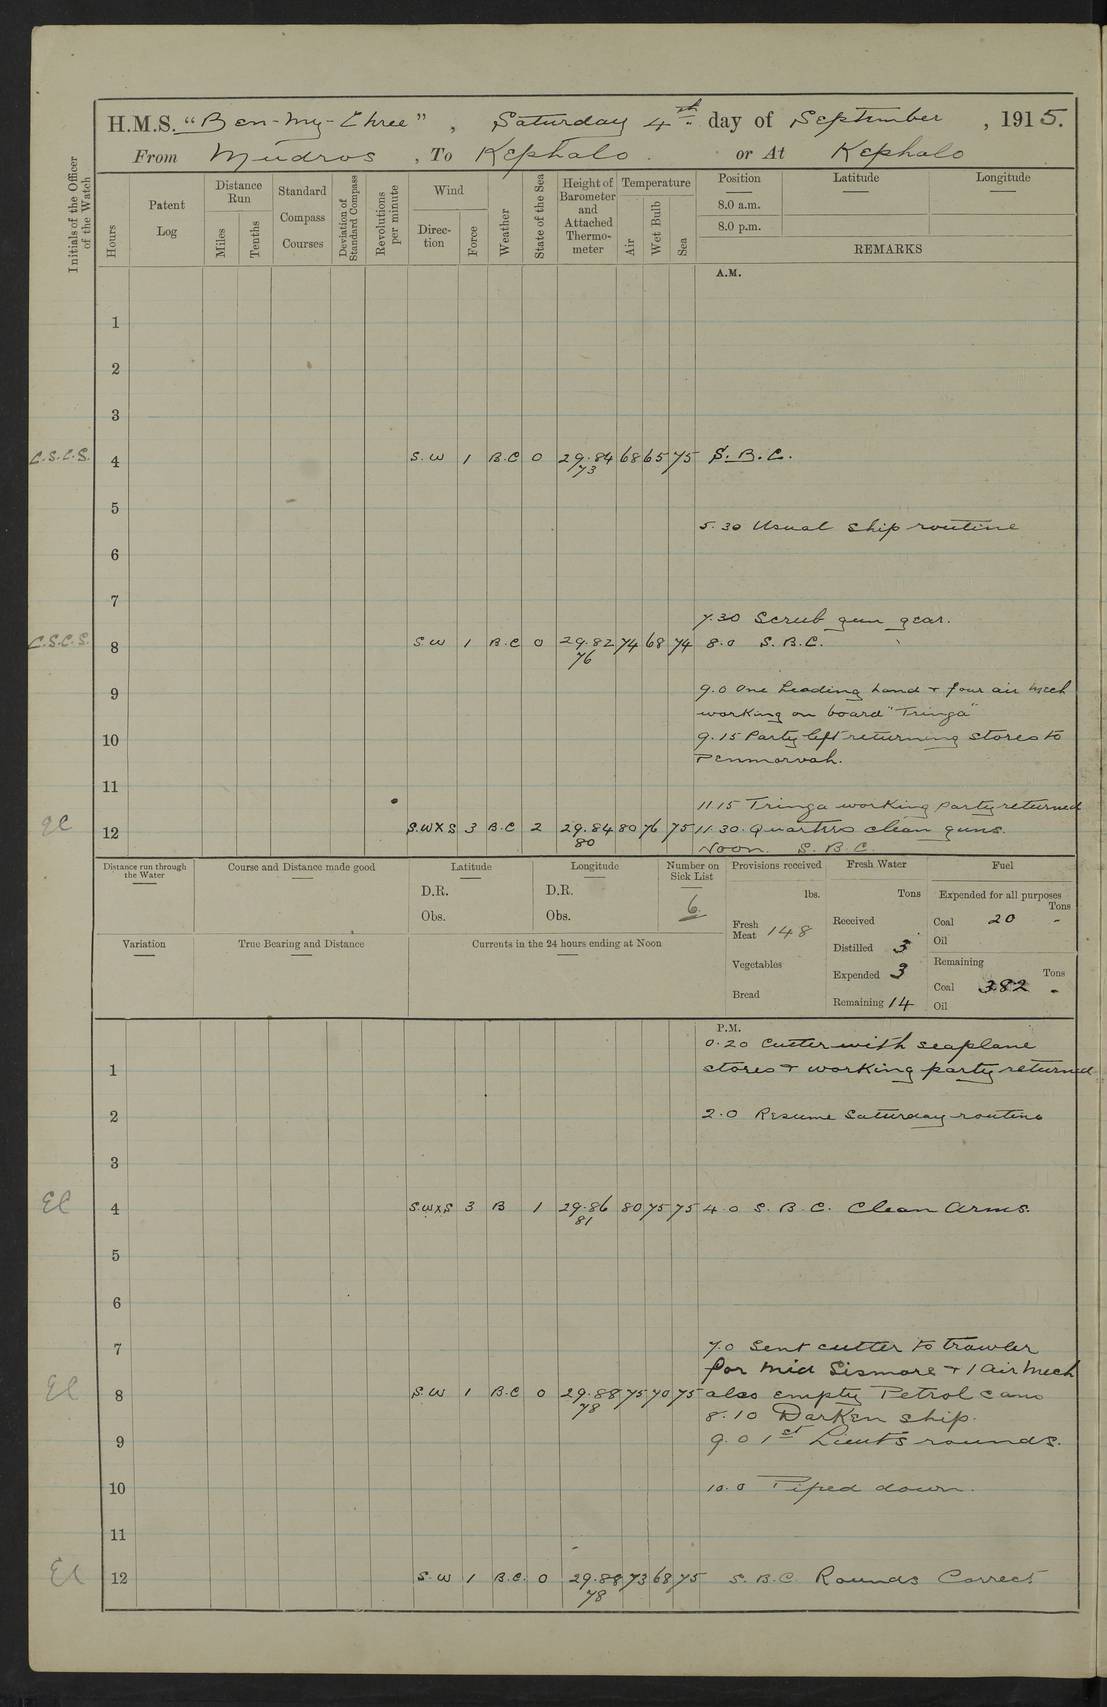 H.M.S. "Ben-my-Chree", Saturday 4th day of September, 1915.
From Mudros, To Kephalo. or At Kephalo
Initials of the Officer of the Watch
Hours
Patent Log
Distance Run
Miles
Tenths
Standard Compass Courses
Deviation of Standard Compass
Revolutions per minute
Wind
Direction
Force
Weather
State of the Sea
Height of Barometer and Attached Thermometer
Temperature
Air
Wet Bulb
Sea
Position
8.0 a.m.
8.0 p.m.
Latitude
Longitude
REMARKS
A.M.
1
2
3
C.S.C.S. 4 S.W 1 B.C 0 29.84 68 65 75 S.B.C.
73
5
5.30 Usual ship routine
6
7
7.30 Scrub gun gear.
C.S.C.S. 8 S.W 1 B.C 0 29.82 74 68 74 8.0 S.B.C.
76
9 9.0 One Leading hand + four air Mech
working on board "Tringa"
10 9.15 Party left returning stores to
Penmorvah.
11
11.15 Tringa working party returned
12 S.WXS 3 B.C 2 29.84 80 76 75 11.30. Quarters clean guns.
80
Noon. S.B.C.
Distance run through the Water
Course and Distance made good
Latitude
D.R.
Obs.
Longitude
D.R.
Obs.
Number on Sick List
6
Provisions received
lbs.
Fresh Meat 148
Vegetables
Bread
Fresh Water
Tons
Received
Distilled 3
Expended 3
Remaining 14
Fuel
Expended for all purposes
Tons
Coal 20 -
Oil
Remaining
Tons
Coal 382 -
Oil
Variation
True Bearing and Distance
Currents in the 24 hours ending at Noon
P.M.
0.20 Cutter with seaplane
1 stores + working party returned
2 2.0 Resume Saturday routine
3
EC 4 S.WXS 3 B 1 29.86 80 75 75 4.0 S.B.C. Clean Arms.
81
5
6
7 7.0 Sent cutter to trawler
for Mid Sismore + 1 Air Mech
EC 8 S.W 1 B.C 0 29.88 75 70 75 also empty Petrol cans
78
8.10 Darken ship.
9 9.0 1st Lieut's rounds.
10 10.0 Piped down.
11
EC 12 S.W 1 B.C. 0 29.88 73 68 75 S.B.C. Rounds Correct
78